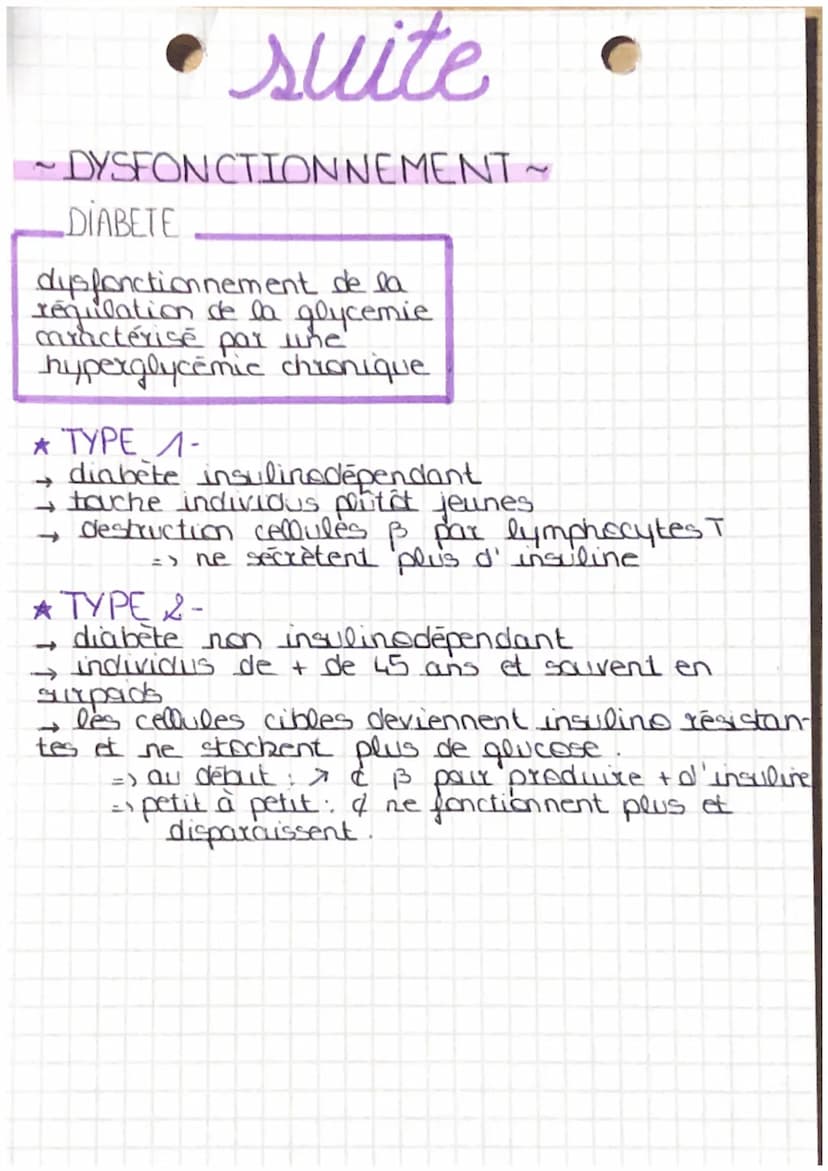 suite
~ DYSFONCTIONNEMENT ~
DIABETE
dysfonctionnement de la
régulation de la glycemie
caractérisé par une
hyperglycémie chronique
★ TYPE 1-
→ diabète insulinodépendant
→ touche individus plutôt jeunes
→ destruction cellules β par lymphocytes T
=> ne sécrètent plus d'insuline
★ TYPE 2-
→ diabète non insulinodépendant
→ individus de + de 45 ans et souvent en
surpoids
→ les cellules cibles deviennent insulino résistan-
tes et ne stockent plus de glucose.
=> au début : ↗ ¢ β pour produire + d'insuline
=> petit à petit : ¢ ne fonctionnent plus et
disparaissent.